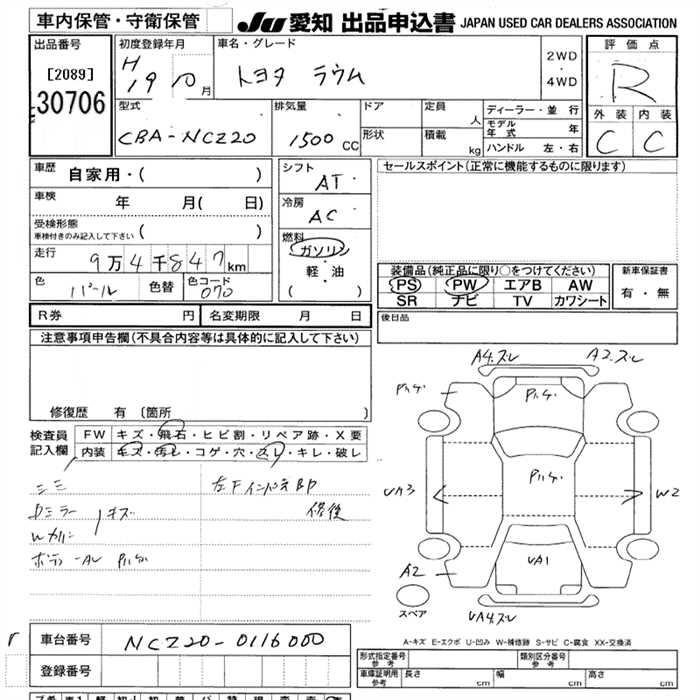 車内保管・守衛保管
JU 愛知 出品申込書 JAPAN USED CAR DEALERS ASSOCIATION
出品番号
[2089]
30706
初度登録年月
H 19 10 月
車名・グレード
トヨタ ラウム
2WD
・
4WD
評価点
R
外装 内装
C C
型式
CBA-NCZ20
排気量
1500 CC
ドア
形状
定員 人
積載 kg
ディーラー・並行
モデル年式 年
ハンドル 左・右
車歴 自家用・( )
車検 年 月( 日)
受検形態
車検付きのみ記入して下さい ( )
走行 9万4千847km
色 パール 色替
色コード 070
シフト AT
冷房 AC
燃料
ガソリン
・
軽・油
( )
セールスポイント(正常に機能するものに限ります)
装備品(純正品に限り○をつけてください)
PS PW エアB AW
SR ナビ TV カワシート
新車保証書
有・無
R券 円 名変期限 月 日
後日品
注意事項申告欄(不具合内容等は具体的に記入して下さい)
修復歴 有 〔箇所 〕
検査員
記入欄
FW キズ・飛石・ヒビ割・リペア跡・X要
内装 キズ・汚レ・コゲ・穴・スレ・キレ・破レ
左Fインパネ部
修復
キズ
A4.スレ A2.スレ
UA3
W2
UA1
A2
UA4スレ
スペア
A-キズ E-エクボ U-凹み W-補修跡 S-サビ C-腐食 XX-交換済
車台番号 NCZ20-0116000
登録番号
形式指定番号
参考
類別区分番号
参考
車庫証明用
参考
長さ cm 幅 cm 高さ cm